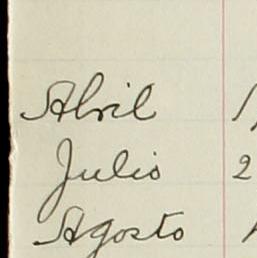 Abril
Julio 2
Agosto